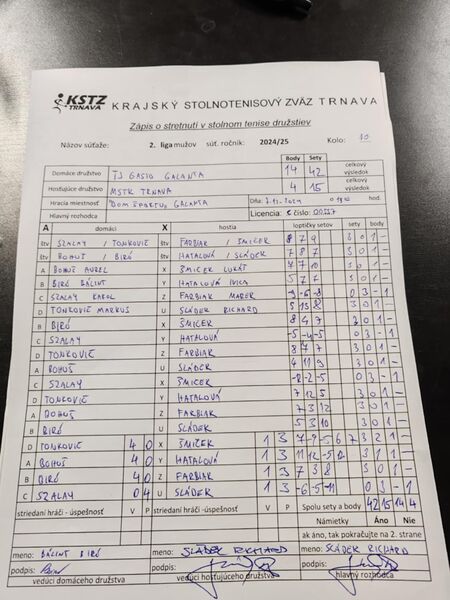 KSTZ TRNAVA KRAJSKÝ STOLNOTENISOVÝ ZVÄZ TRNAVA
Zápis o stretnutí v stolnom tenise družstiev
Názov súťaže: 2. liga mužov súť. ročník: 2024/25 Kolo: 10
Body Sety
Domáce družstvo TJ GASTO GALANTA 14 42 celkový výsledok
Hosťujúce družstvo MSTK TRNAVA 4 15 celkový výsledok
Hracia miestnosť DOM ŠPORTU GALANTA Dňa:
Hlavný rozhodca Licencia č číslo:
A domáci X hostia loptičky setov sety body
štv SZALAY / TONKOVIČ štv FARBIAR / ŠMIČEK 8 7 9 3 0 1 -
štv BOHUŠ / BIRÓ štv HATALOVÁ / SLÁDEK 7 8 7 3 0 1 -
A BOHUŠ AUREL X ŠMIČEK LUKÁŠ 7 7 10 3 0 1 -
B BIRÓ BÁLINT Y HATALOVÁ IVICA 5 7 7 3 0 1 -
C SZALAY KAROL Z FARBIAR MAREK 0 3 - 1
D TONKOVIČ MARKUS U SLÁDEK RICHARD 3 0 1 -
B BIRÓ X ŠMIČEK 8 4 7 3 0 1 -
C SZALAY Y HATALOVÁ -5 -4 -5 0 3 - 1
D TONKOVIČ Z FARBIAR 8 7 7 3 0 1 -
A BOHUŠ U SLÁDEK 4 11 9 3 0 1 -
C SZALAY X ŠMIČEK -8 -2 -5 0 3 - 1
D TONKOVIČ Y HATALOVÁ 7 12 5 3 0 1 -
A BOHUŠ Z FARBIAR 7 3 12 3 0 1 -
B BIRÓ U SLÁDEK 5 5 8 3 0 1 -
D TONKOVIČ 4 0 X ŠMIČEK 1 3 7 -9 -5 6 7 3 2 1 -
A BOHUŠ 4 0 Y HATALOVÁ 1 3 3 1 1 -
B BIRÓ 4 0 Z FARBIAR 1 3 7 3 8 3 0 1 -
C SZALAY 0 4 U SLÁDEK 1 3 -6 -5 -11 0 3 - 1
striedaní hráči - úspešnosť V P striedaní hráči - úspešnosť V P Spolu sety a body 42 15 14 4
Námietky Áno Nie
ak áno, tak pokračujte na 2. strane
meno: BÁLINT BIRÓ meno: SLÁDEK RICHARD meno: SLÁDEK RICHARD
podpis: podpis: podpis:
vedúci domáceho družstva vedúci hosťujúceho družstva hlavný rozhodca